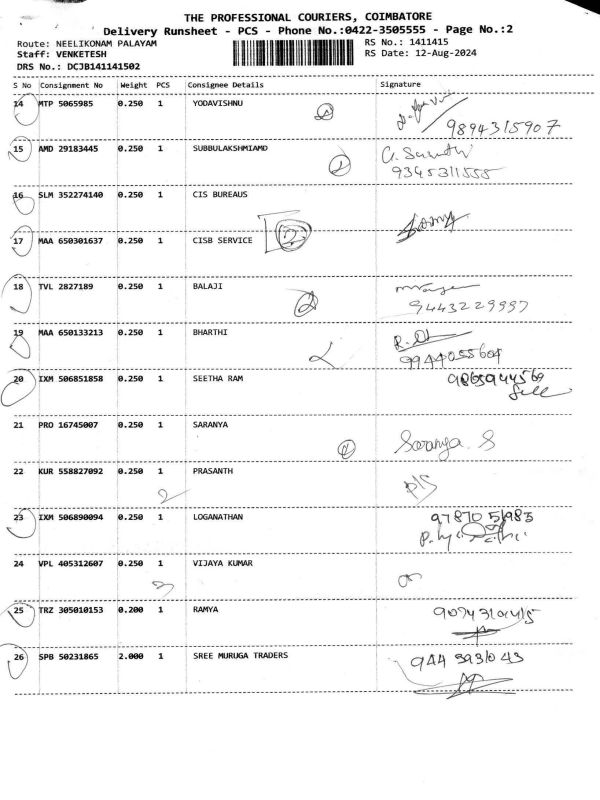 THE PROFESSIONAL COURIERS, COIMBATORE
Delivery Runsheet - PCS - Phone No.:0422-3505555 - Page No.:2
Route: NEELIKONAM PALAYAM RS No.: 1411415
Staff: VENKETESH RS Date: 12-Aug-2024
DRS No.: DCJB141141502
S No Consignment No Weight PCS Consignee Details Signature
14 MTP 5065985 0.250 1 YODAVISHNU
9894315907
15 AMD 29183445 0.250 1 SUBBULAKSHMIAMD
9345311555
16 SLM 352274140 0.250 1 CIS BUREAUS
17 MAA 650301637 0.250 1 CISB SERVICE 2
18 TVL 2827189 0.250 1 BALAJI
2 9443229997
19 MAA 650133213 0.250 1 BHARTHI
9944055604
20 IXM 506851858 0.250 1 SEETHA RAM
21 PRO 16745007 0.250 1 SARANYA
Saranya. S
22 KUR 558827092 0.250 1 PRASANTH
2
23 IXM 506890094 0.250 1 LOGANATHAN 9787051983
24 VPL 405312607 0.250 1 VIJAYA KUMAR
25 TRZ 305010153 0.200 1 RAMYA
26 SPB 50231865 2.000 1 SREE MURUGA TRADERS